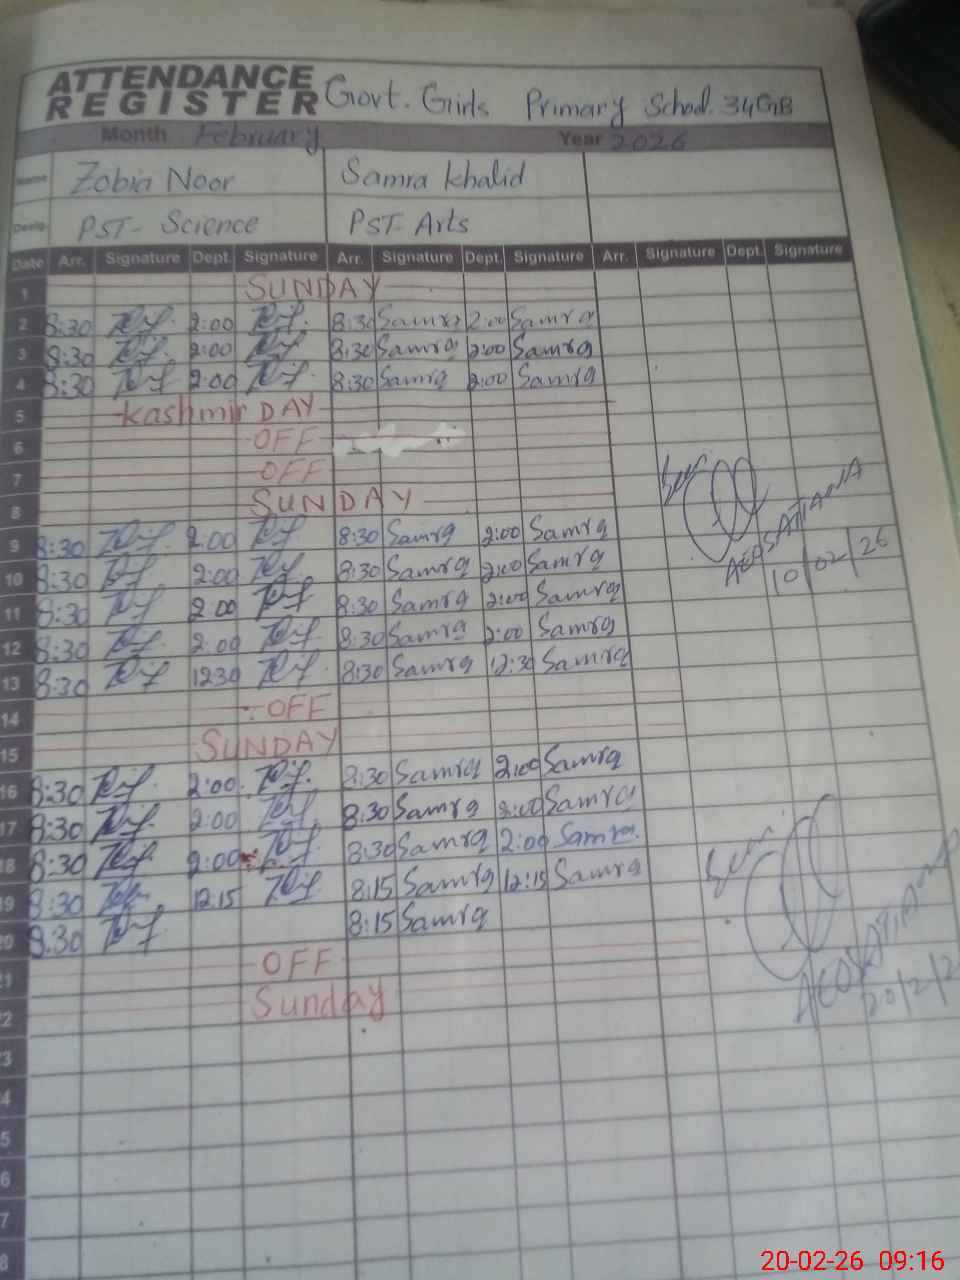 ATTENDANCE REGISTER Govt. Girls Primary School. 34GB
Month February Year 2026
Name Zobia Noor Samra Khalid
Desig. PST- Science PST- Arts
Date Arr. Signature Dept. Signature Arr. Signature Dept. Signature Arr. Signature Dept. Signature
1 SUNDAY
2 8:30 2:00 8:30 Samra 2:00 Samra
3 8:30 2:00 8:30 Samra 2:00 Samra
4 8:30 2:00 8:30 Samra 2:00 Samra
5 Kashmir DAY
6 OFF
7 OFF
8 SUNDAY
9 8:30 2:00 8:30 Samra 2:00 Samra
10 8:30 2:00 8:30 Samra 2:00 Samra
11 8:30 2:00 8:30 Samra 2:00 Samra
12 8:30 2:00 8:30 Samra 2:00 Samra
13 8:30 1230 8:30 Samra 12:30 Samra
10/02/26
14 OFF
15 SUNDAY
16 8:30 2:00 8:30 Samra 2:00 Samra
17 8:30 2:00 8:30 Samra 2:00 Samra
18 8:30 2:00 8:30 Samra 2:00 Samra.
19 8:30 12:15 8:15 Samra 12:15 Samra
20 8:30 8:15 Samra
21 OFF
22 Sunday
20/2/2
3
4
5
6
7
8
20-02-26 09:16